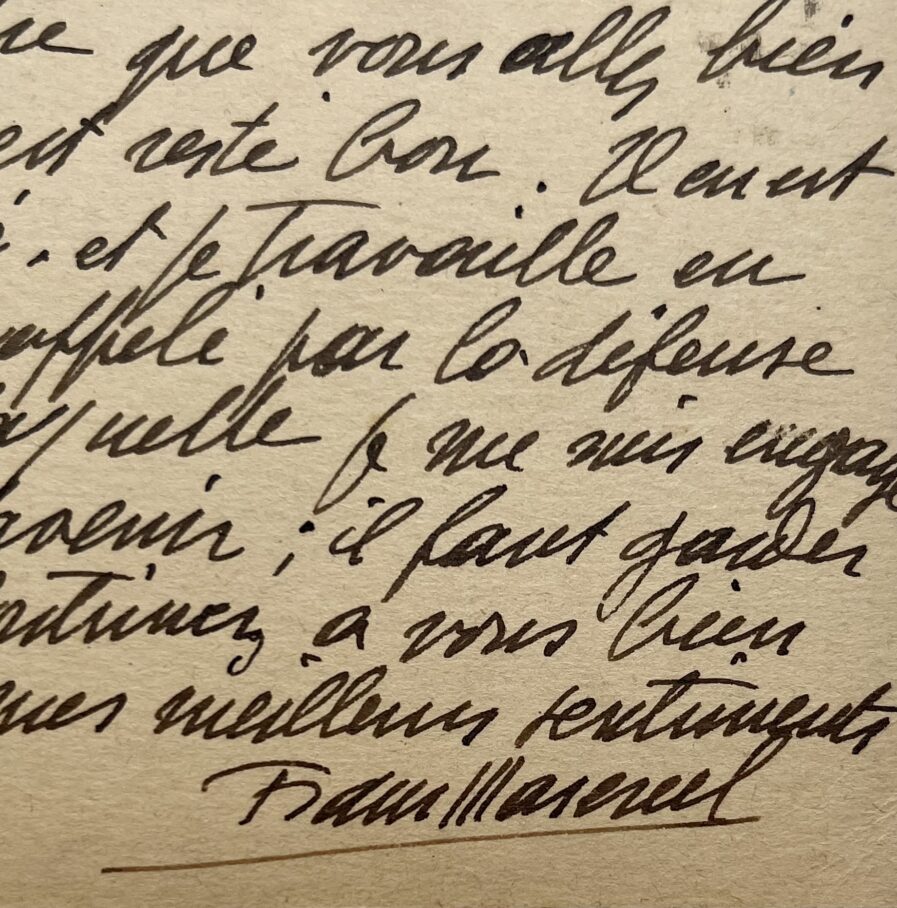 que vous allez bien
est resté bon. Il en est
. et je travaille en
appelé par la défense
laquelle je me suis engagé
avenir ; il faut garder
continuez à vous bien
mes meilleurs sentiments
Frans Masereel